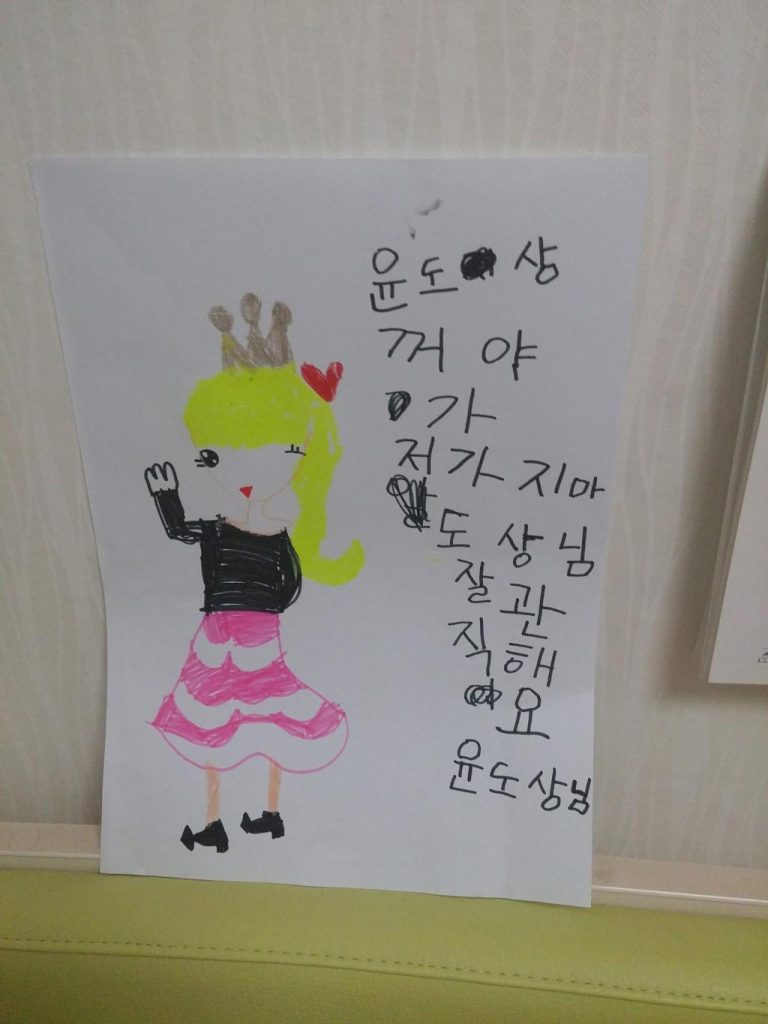 윤도상
꺼야
가
저가지마
도상님
잘관
직해
요
윤도상님